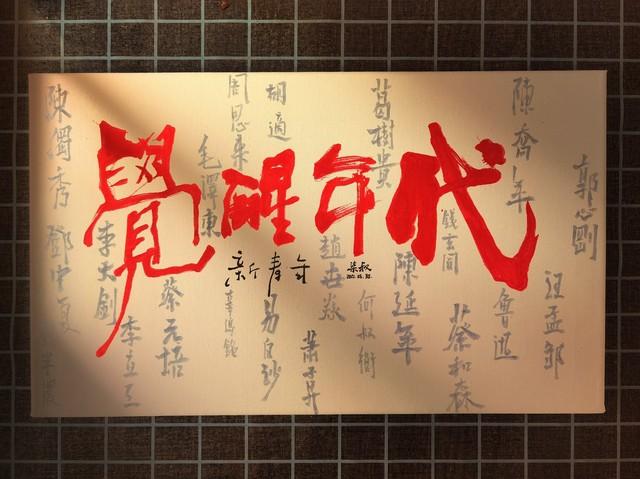 覺醒年代
新青年
陳獨秀
鄧中夏
李大釗
毛澤東
周恩来
胡適
葛樹貴
陳喬年
郭心剛
錢玄同
趙世炎
陳延年
何叔衡
魯迅
汪孟鄒
蔡和森
蕭子昇
易白沙
辜鴻銘
蔡元培
李立三